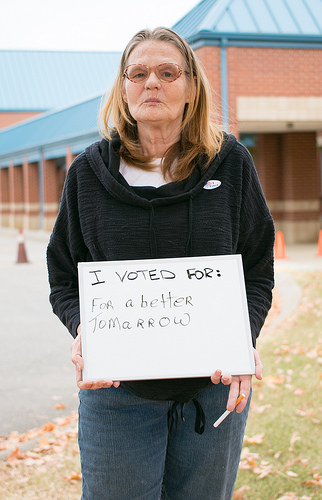 I VOTED FOR:
FOR a better
TOMARROW